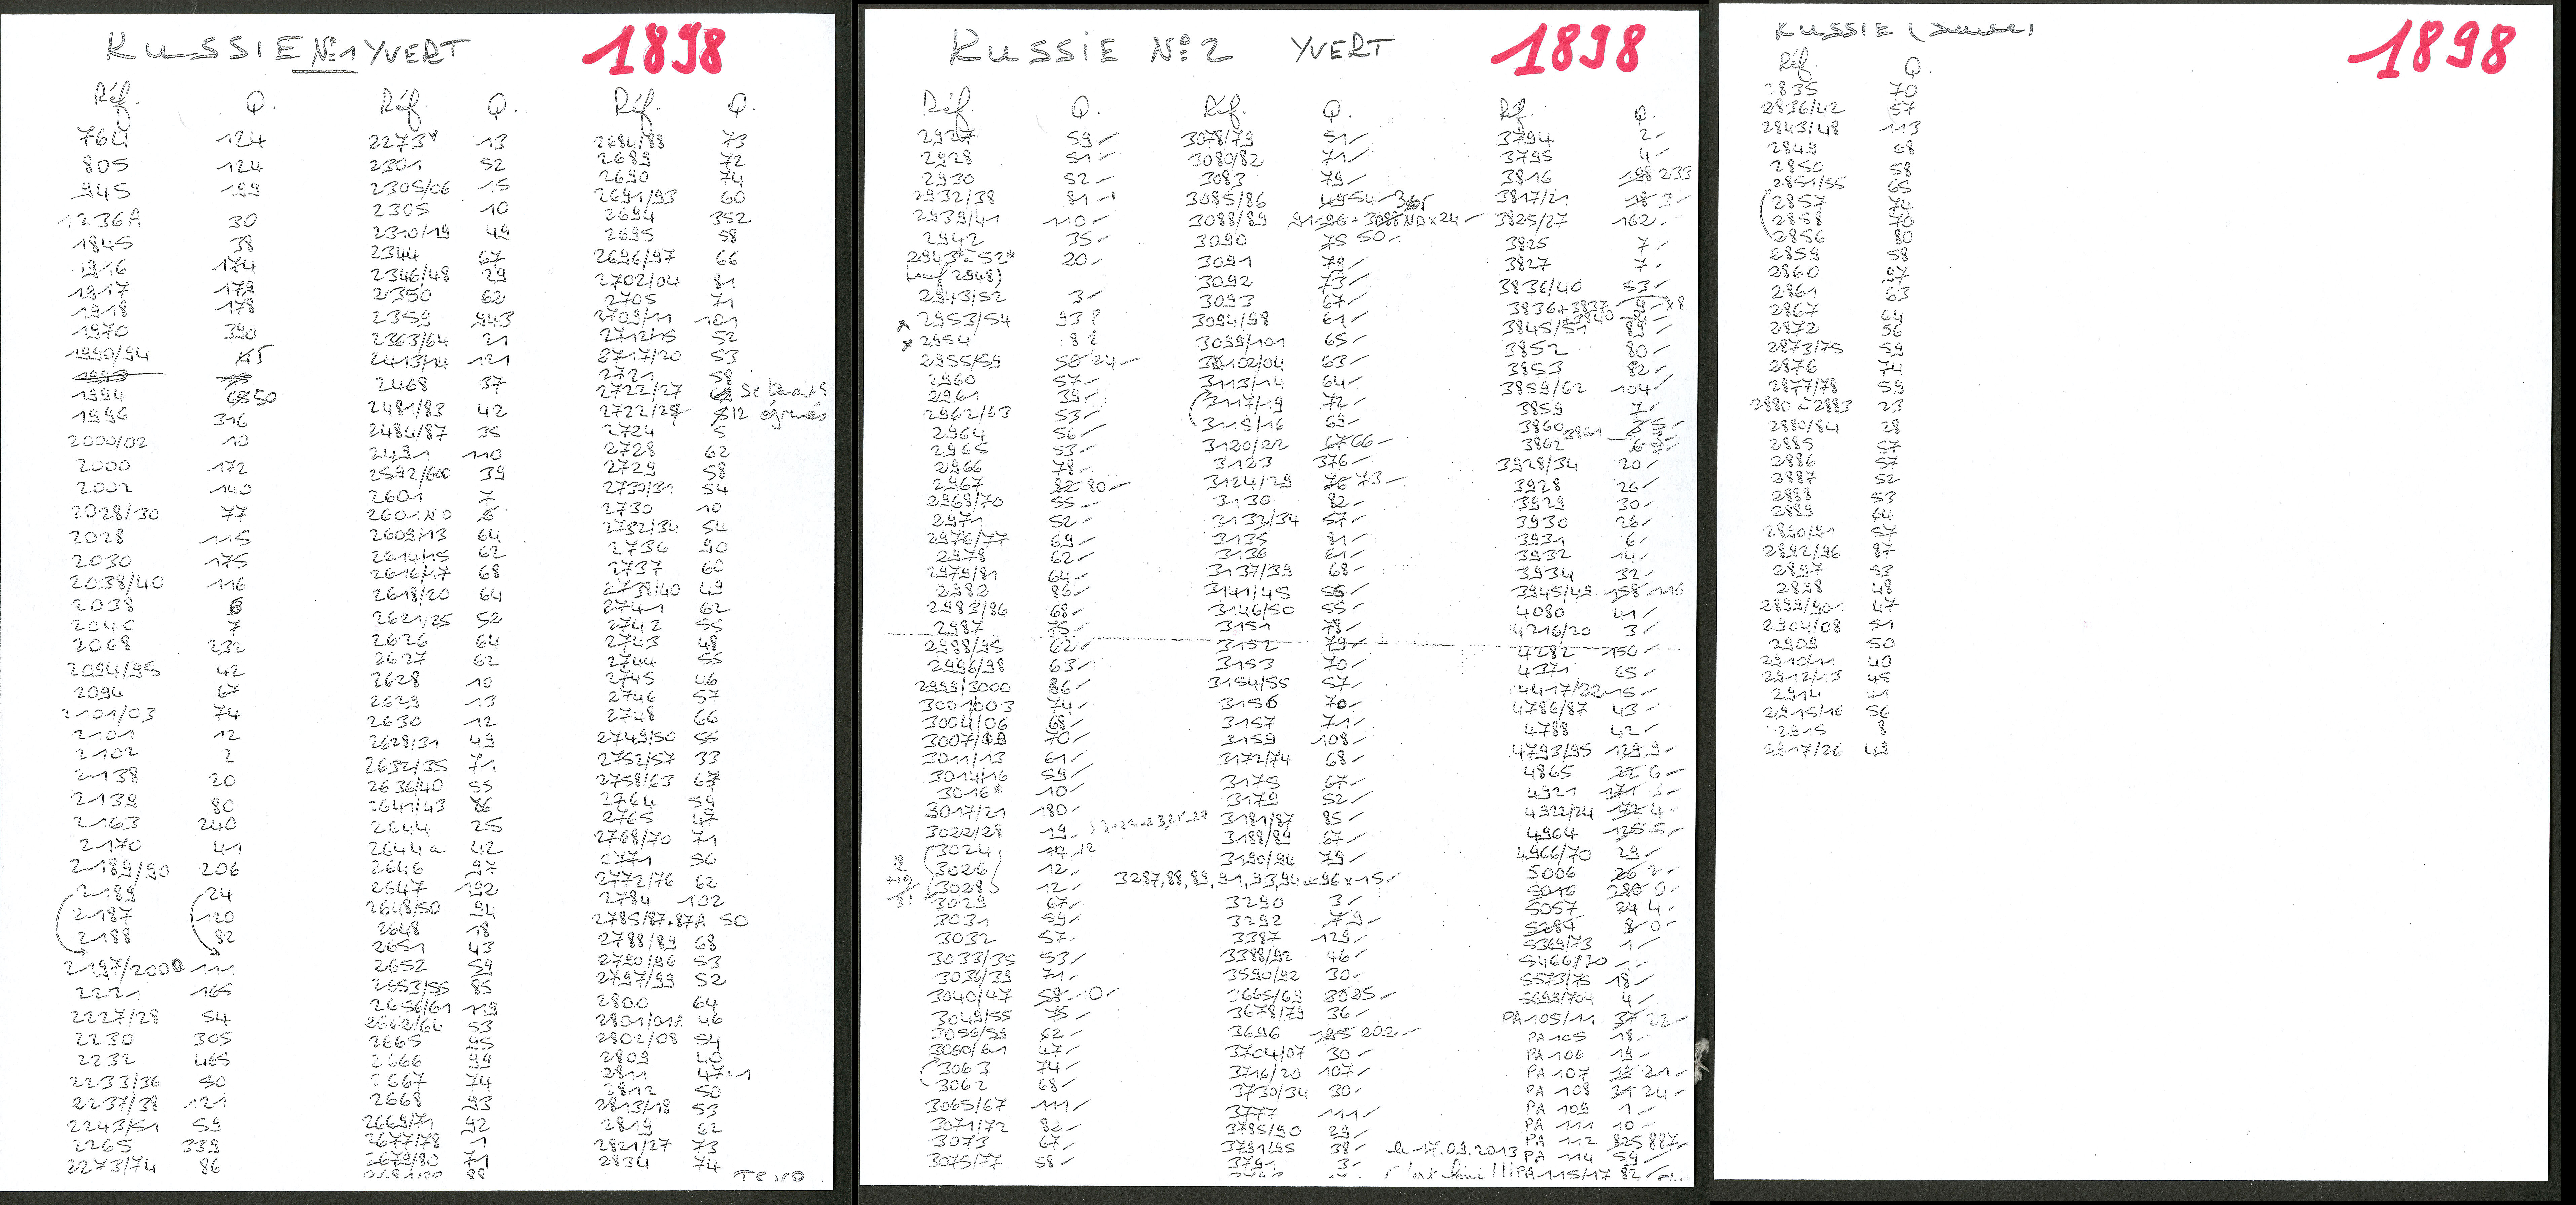 RUSSIE N°1 YVERT 1898
Réf. Q.
764 124
805 124
945 199
1236A 30
1845 38
1916 174
1917 179
1918 178
1970 390
1990/94
1994 50
1996 316
2000/02 10
2000 172
2002 140
2028/30 77
2028 115
2030 175
2038/40 116
2038 6
2040 7
2068 232
2094/95 42
2094 67
2101/03 74
2101 12
2102 2
2138 20
2139 80
2163 240
2170 41
2189/90 206
2189 24
2187 120
2188 82
2197/200 111
2221 165
2227/28 54
2230 305
2232 465
2233/36 50
2237/38 121
2243/51 59
2265 339
2273/74 86
Réf. Q.
2273* 13
2301 52
2305/06 15
2305 10
2310/19 49
2344 67
2346/48 29
2350 62
2359 943
2363/64 21
2413/14 121
2468 37
2481/83 42
2484/87 35
2491 110
2592/600 39
2601 7
2601ND 6
2609/13 64
2614/15 62
2616/17 68
2618/20 64
2621/25 52
2626 64
2627 62
2628 10
2629 13
2630 12
2628/31 49
2632/35 71
2636/40 55
2641/43 86
2644 25
2644a 42
2646 97
2647 192
2648/50 94
2648 18
2651 43
2652 59
2653/55 85
2656/61 119
2662/64 53
2665 95
2666 99
2667 74
2668 93
2669/71 92
2677/78 1
2679/80 71
88
Réf. Q.
2684/88 73
2689 72
2690 74
2691/93 60
2694 352
2695 58
2696/97 66
2702/04 81
2705 71
2709/11 101
2712/15 52
2717/20 53
2721 58
2722/27 se tenants
2722/27 12 égrenés
2724 5
2728 62
2729 58
2730/31 54
2730 10
2732/34 54
2736 90
2737 60
2738/40 49
2741 62
2742 55
2743 48
2744 55
2745 46
2746 57
2748 66
2749/50 55
2752/57 33
2758/63 67
2764 59
2765 47
2768/70 71
2771 56
2772/76 62
2784 102
2785/87+87A 50
2788/89 68
2790/96 53
2797/99 52
2800 64
2801/01A 46
2802/08 54
2809 40
2811 47+1
2812 50
2813/18 53
2819 62
2821/27 73
2834 74
RUSSIE N°2 YVERT 1898
Réf. Q.
2927 59
2928 51
2930 52
2932/38 81
2939/41 110
2942 35
2943*à 52* 20
(sauf 2948)
2943/52 3
2953/54 93?
2954 8?
2955/59 50 24
2960 57
2961 39
2962/63 53
2964 56
2965 53
2966 78
2967 82 80
2968/70 55
2971 52
2976/77 69
2978 62
2979/81 64
2982 86
2983/86 68
2987 75
2988/95 62
2996/98 63
2999/3000 86
3001/003 74
3004/06 68
3007/10 70
3011/13 61
3014/16 59
3016* 10
3017/21 180
3022/28 19
3024 12
3026 12
3028 12
3029 67
3031 59
3032 57
3033/35 53
3036/39 71
3040/47 58 10
3049/55 75
3056/59 62
3060/61 47
3063 74
3062 68
3065/67 111
3071/72 82
3073 67
3075/77 58
Réf. Q.
3078/79 51
3080/82 71
3083 79
3085/86
3088/89 3088ND x 24
3090 75 50
3091 79
3092 73
3093 67
3094/98 61
3099/101 65
3102/04 63
3113/14 64
3117/19 72
3115/16 69
3120/22 67 66
3123 376
3124/29 76 73
3130 82
3132/34 57
3135 81
3136 61
3137/39 68
3141/45 56
3146/50 55
3151 78
3152 79
3153 70
3154/55 57
3156 70
3157 71
3159 108
3172/74 68
3175 67
3179 52
3181/87 85
3188/89 67
3190/94 79
3287,88,89,91,93,94 et 96 x 15
3290 3
3292 79
3387 129
3388/92 46
3590/92 30
3665/69 30 25
3678/79 36
3696 195 202
3704/07 30
3716/20 107
3730/34 30
3777 111
3785/90 29
3791/95 38
3791 3
Réf. Q.
3794 2
3795 4
3816 198 233
3817/21 18 3
3825/27 162
3825 7
3827 7
3836/40 53
3836+3837+3840 9 x 8
3845/51 89
3852 80
3853 82
3859/62 104
3859 7
3860
3861
3862
3928/34 20
3928 26
3929 30
3930 26
3931 6
3932 14
3934 32
3945/49 158 116
4080 41
4216/20 3
4282 150
4371 65
4417/22 15
4786/87 43
4788 42
4793/95 129 9
4865 22 6
4921 171 3
4922/24 172 4
4964 125 5
4966/70 29
5006 26 2
5016 280 0
5057 24 4
5284 8 0
5369/73 1
5466/70 1
5573/75 18
5699/704 4
PA105/11 37 22
PA 105 18
PA 106 19
PA 107 19 21
PA 108 21 24
PA 109 1
PA 111 10
PA 112 825 887
le 17.09.2013 PA 114 59
c'est fini!!! PA 115/17 82
RUSSIE (suite) 1898
Réf. Q.
2835 70
2836/42 57
2843/48 113
2849 68
2850 58
2851/55 65
2857 74
2858 70
2856 80
2859 58
2860 97
2861 63
2867 64
2872 56
2873/75 59
2876 74
2877/78 59
2880 à 2883 23
2880/84 28
2885 57
2886 57
2887 52
2888 53
2889 64
2890/91 57
2892/96 87
2897 53
2898 48
2899/901 47
2904/08 51
2909 50
2910/11 40
2912/13 45
2914 41
2915/16 56
2915 8
2917/26 49